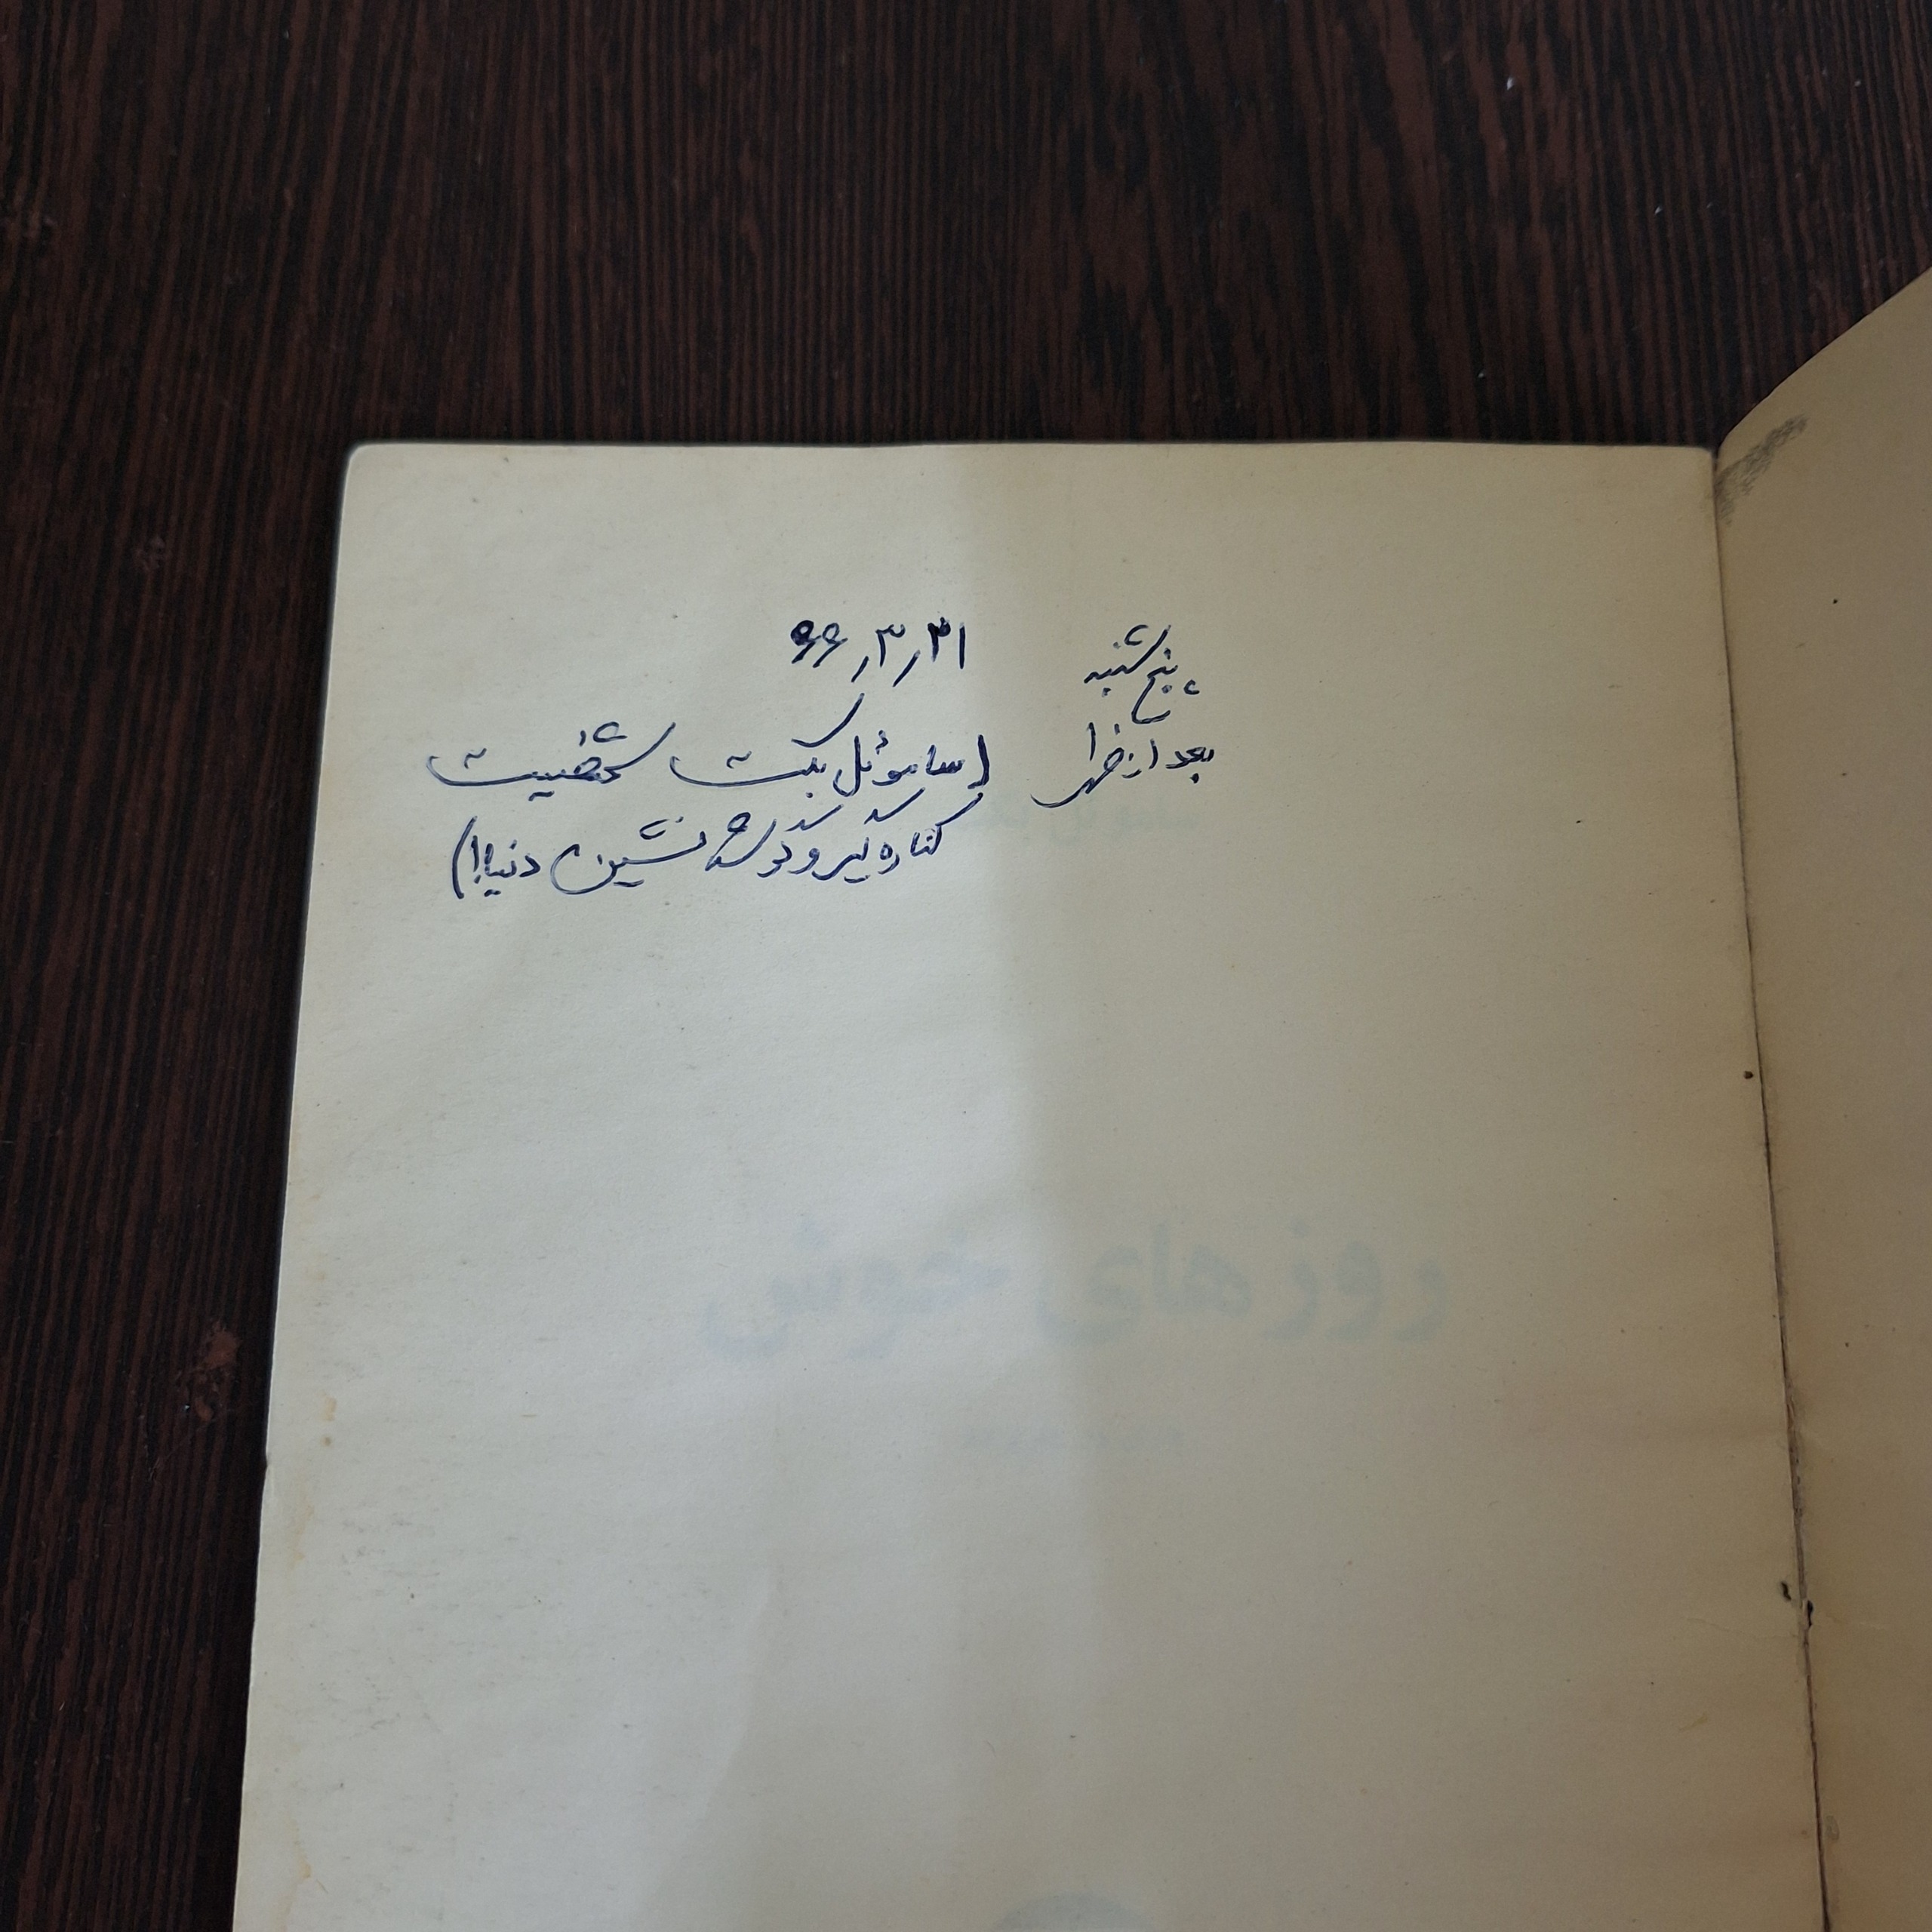 پنج شنبه ۲۱٫۳٫۶۶
بعد از ظهر (ساموئل بکت شخصیت
کناره گیر و گوشه نشین دنیا!)
روزهای خوش